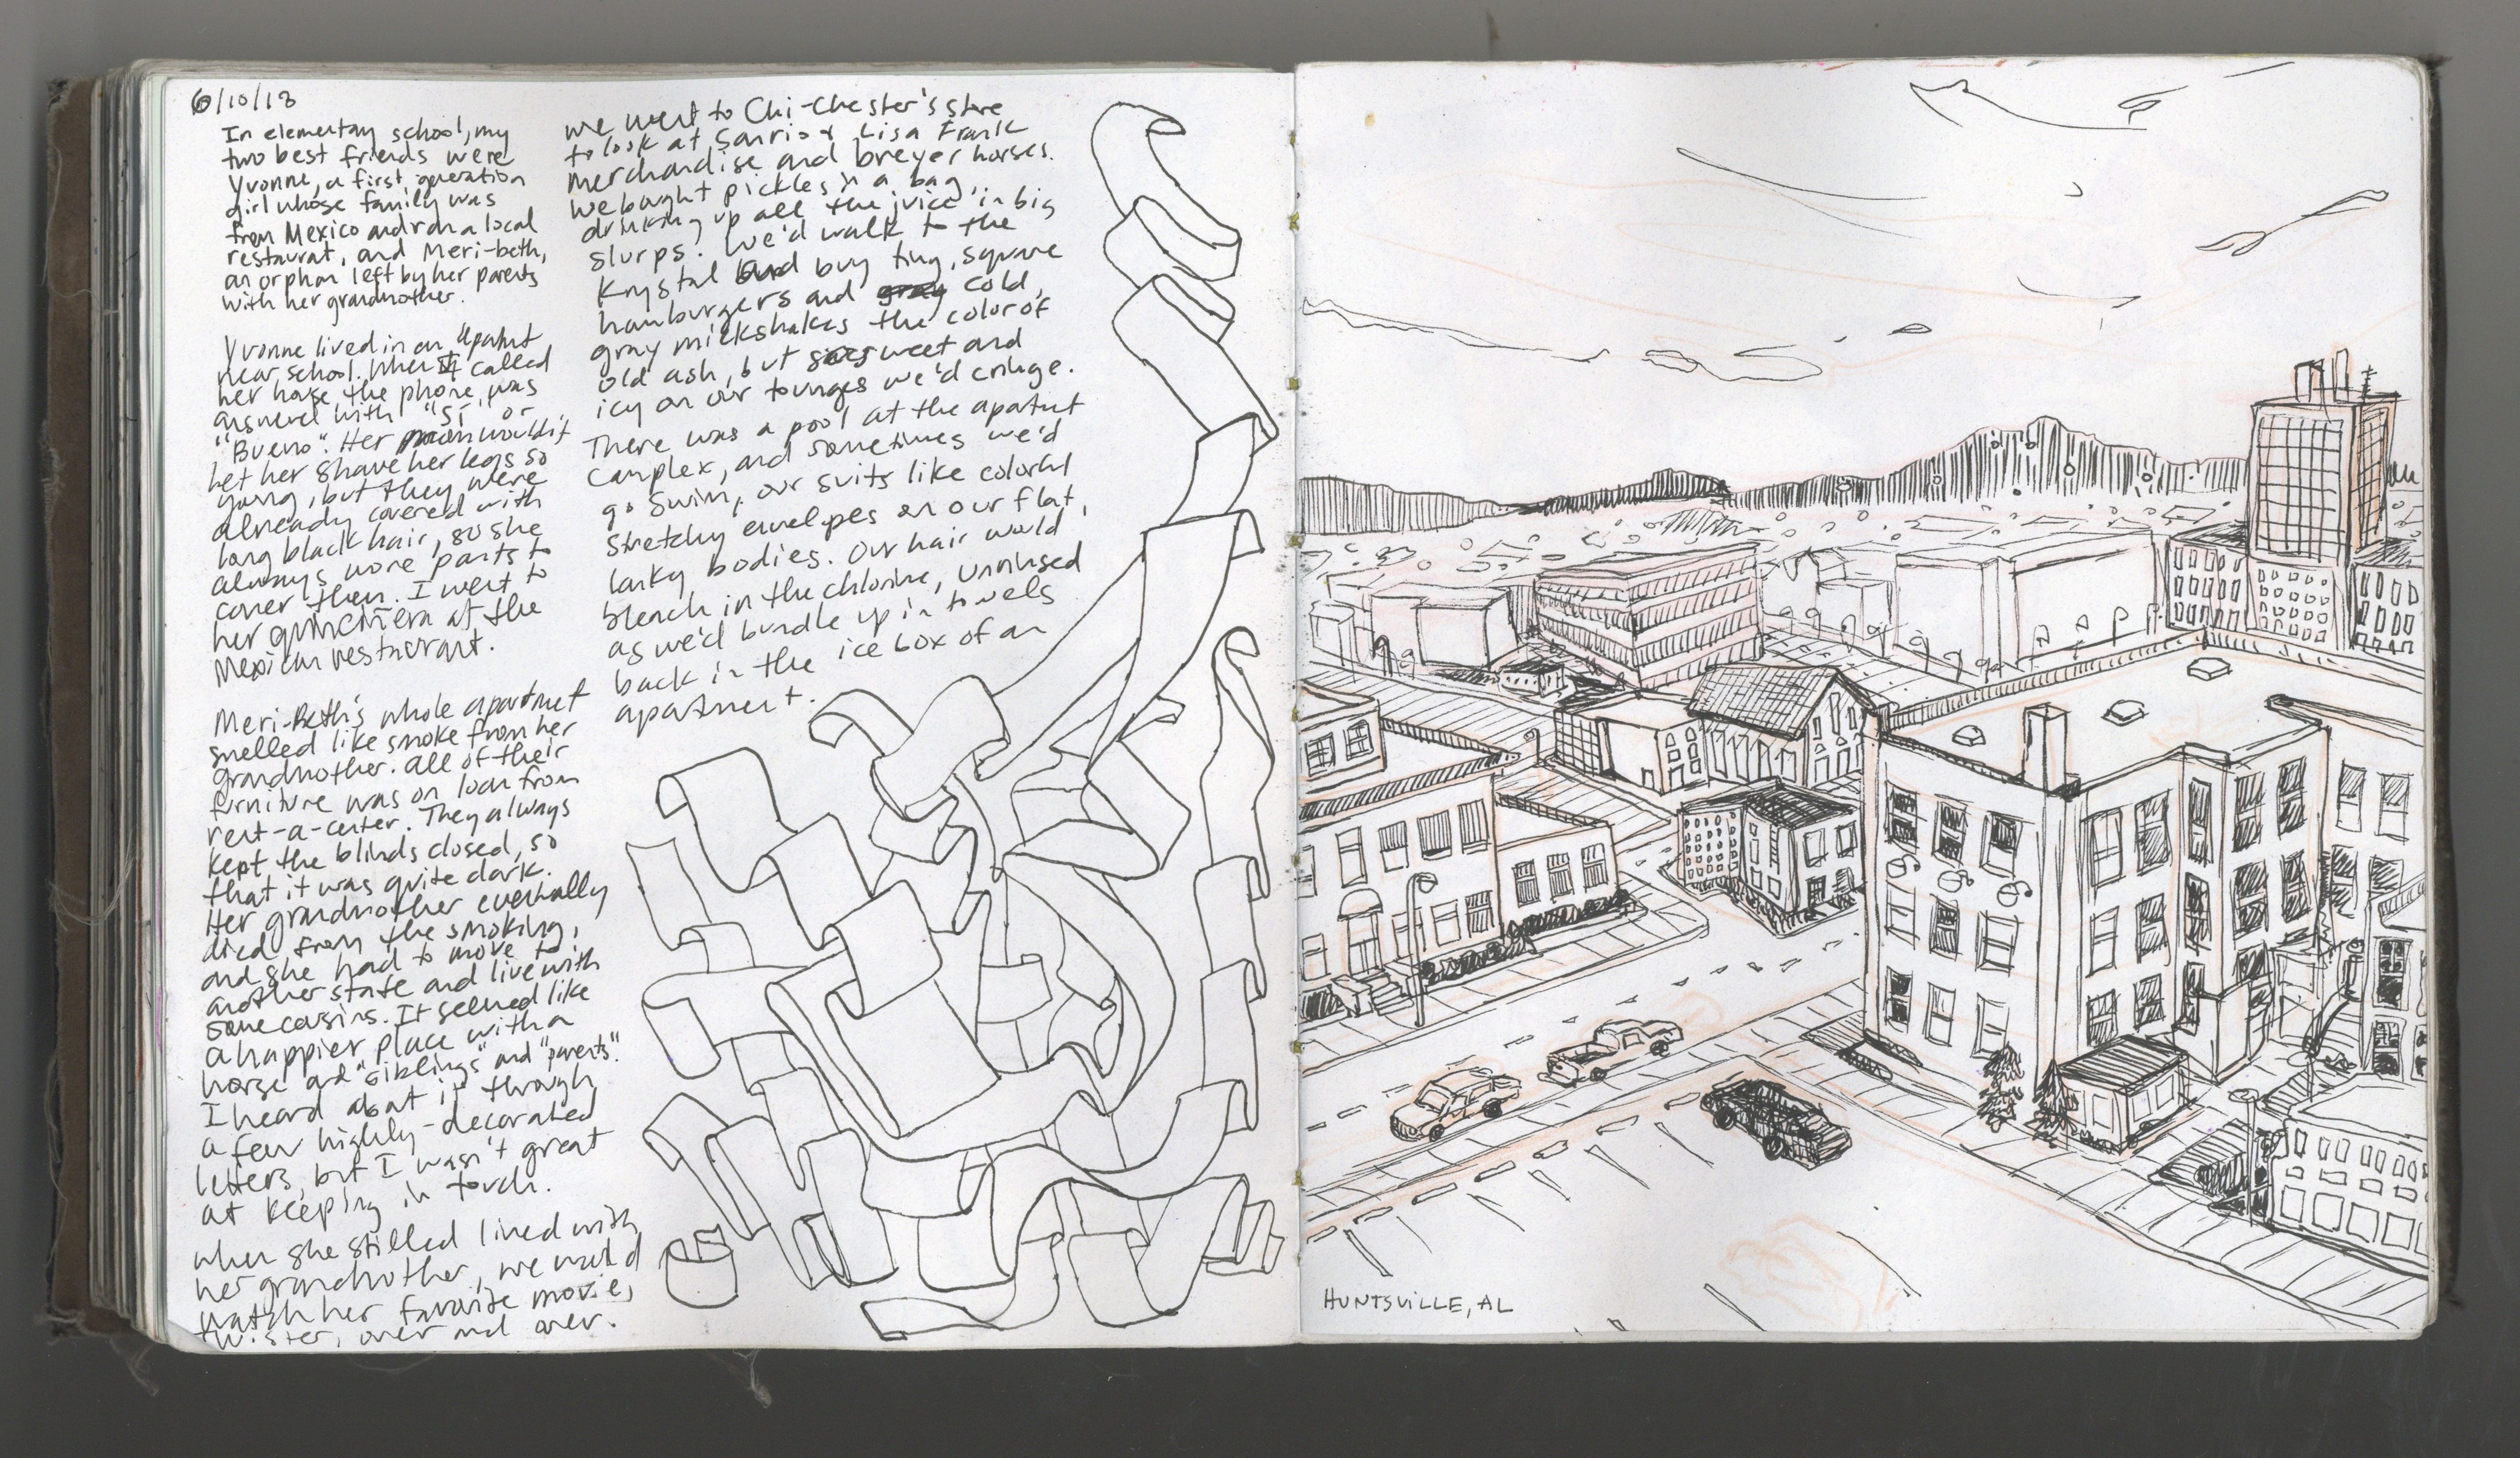 6/10/13
In elementary school, my
two best friends were
Yvonne, a first generation
girl whose family was
from Mexico and ran a local
restaurat, and Meri-beth,
an orphan left by her parents
with her grandmother.
Yvonne lived in an apatmt
near school. When I called
her house, the phone was
answered with "Sí" or
"Bueno". Her mom wouldn't
let her shave her legs so
young, but they were
already covered with
long black hair, so she
always wore pants to
cover them. I went to
her quinceñera at the
Mexican restaurant.
Meri-Beth's whole apartmet
smelled like smoke from her
grandmother. All of their
furniture was on loan from
rent-a-center. They always
kept the blinds closed, so
that it was quite dark.
Her grandmother eventually
died from the smoking,
and she had to move to
another state and live with
some cousins. It seemed like
a happier place with a
horse and "siblings" and "parents".
I heard about it through
a few highly-decorated
letters, but I wasn't great
at keeping in touch.
When she stilled lived with
her grandmother, we would
watch her favorite movie,
twister, over and over.
we went to Chi-Chester's store
to look at Sanrio & Lisa Frank
merchandise and breyer horses.
We bought pickles in a bag,
drinking up all the juice in big
slurps. We'd walk to the
Krystal and buy tiny, square
hamburgers and cold,
gray milkshakes the color of
old ash, but so sweet and
icy on our tounges we'd cringe.
There was a pool at the apatmt
complex, and sometimes we'd
go swim, our suits like colorful
stretchy envelopes on our flat,
lanky bodies. Our hair would
bleach in the chlorine, unrinsed
as we'd bundle up in towels
back in the ice box of an
apartment.
HUNTSVILLE, AL